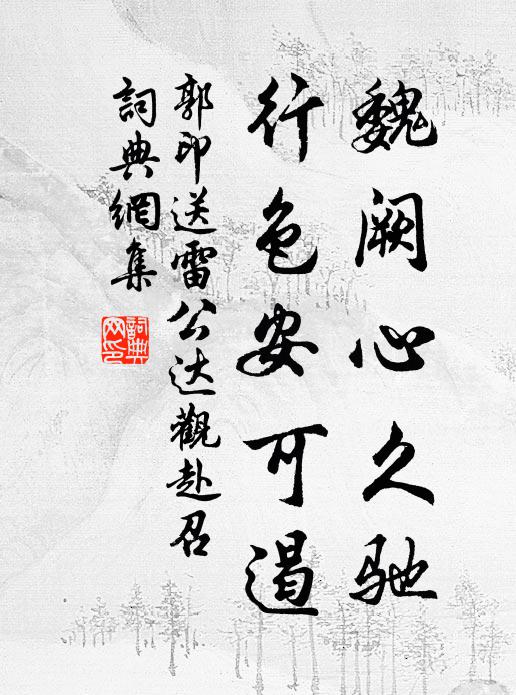 魏阙心久驰
行色安可遏
郭印送雷公达觀赴召
詞典網集
詞典网印